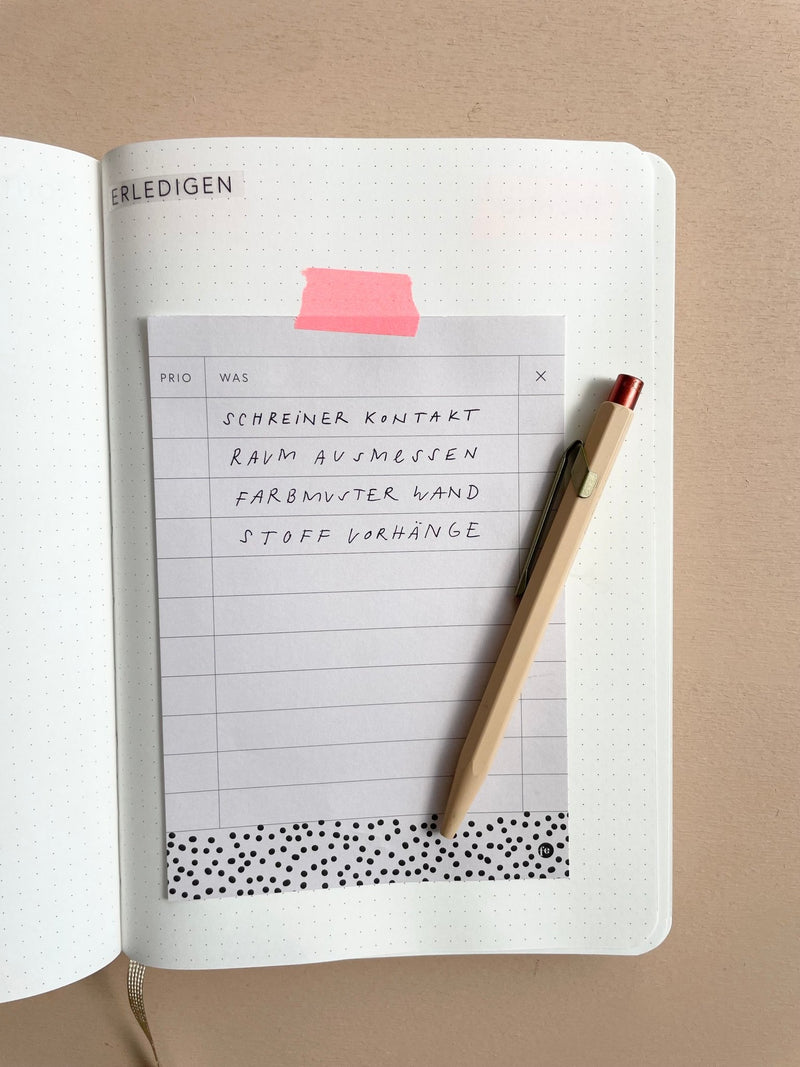 ERLEDIGEN
PRIO WAS X
SCHREINER KONTAKT
RAUM AUSMESSEN
FARBMUSTER WAND
STOFF VORHÄNGE
fe